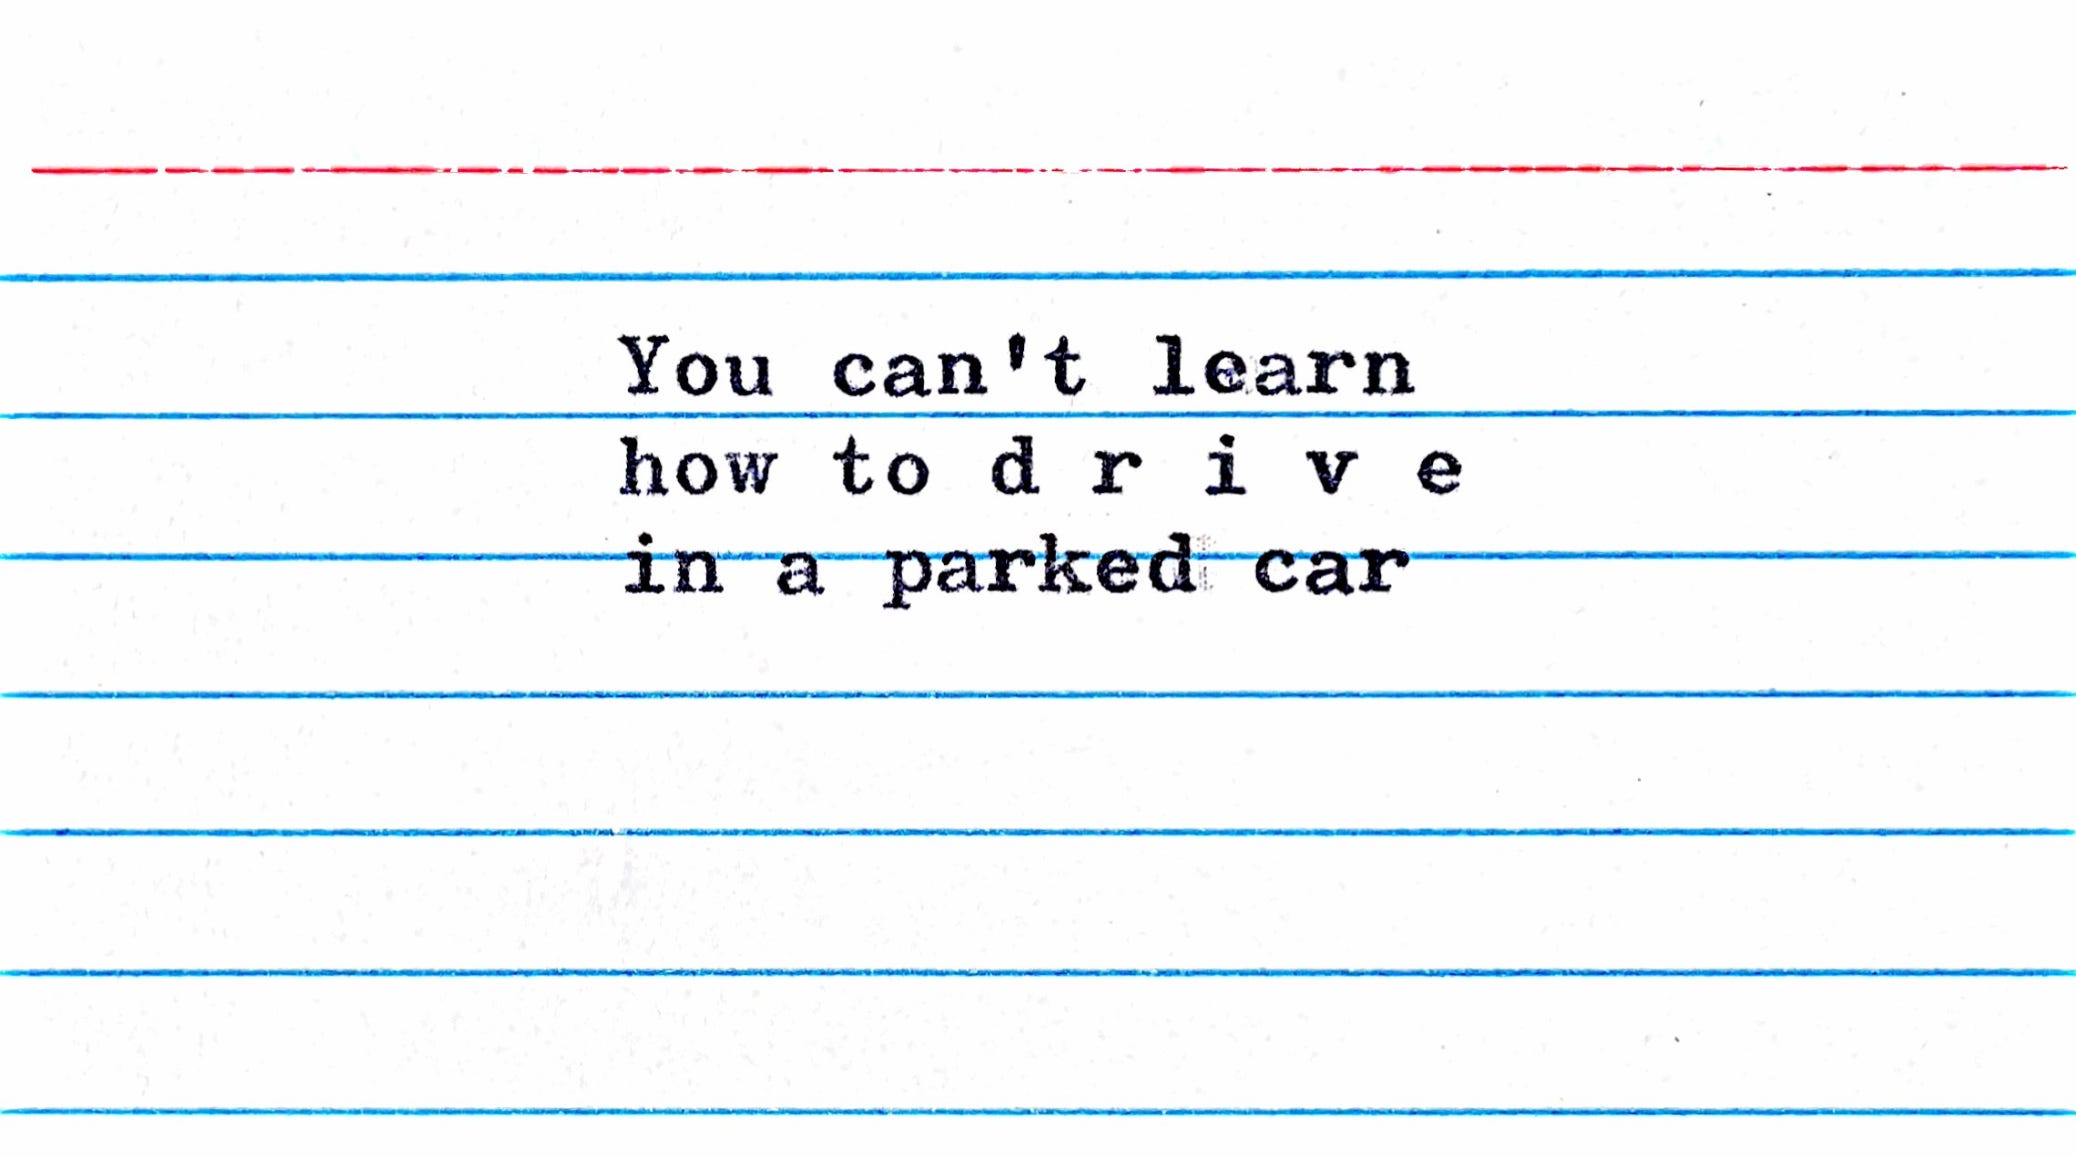 You can't learn
how to d r i v e
in a parked car